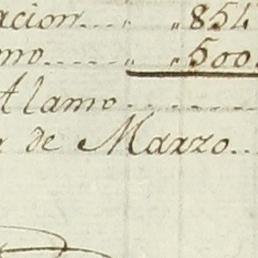 acion... " " 854
mo..... " " 500
Alamo........
de Marzo..